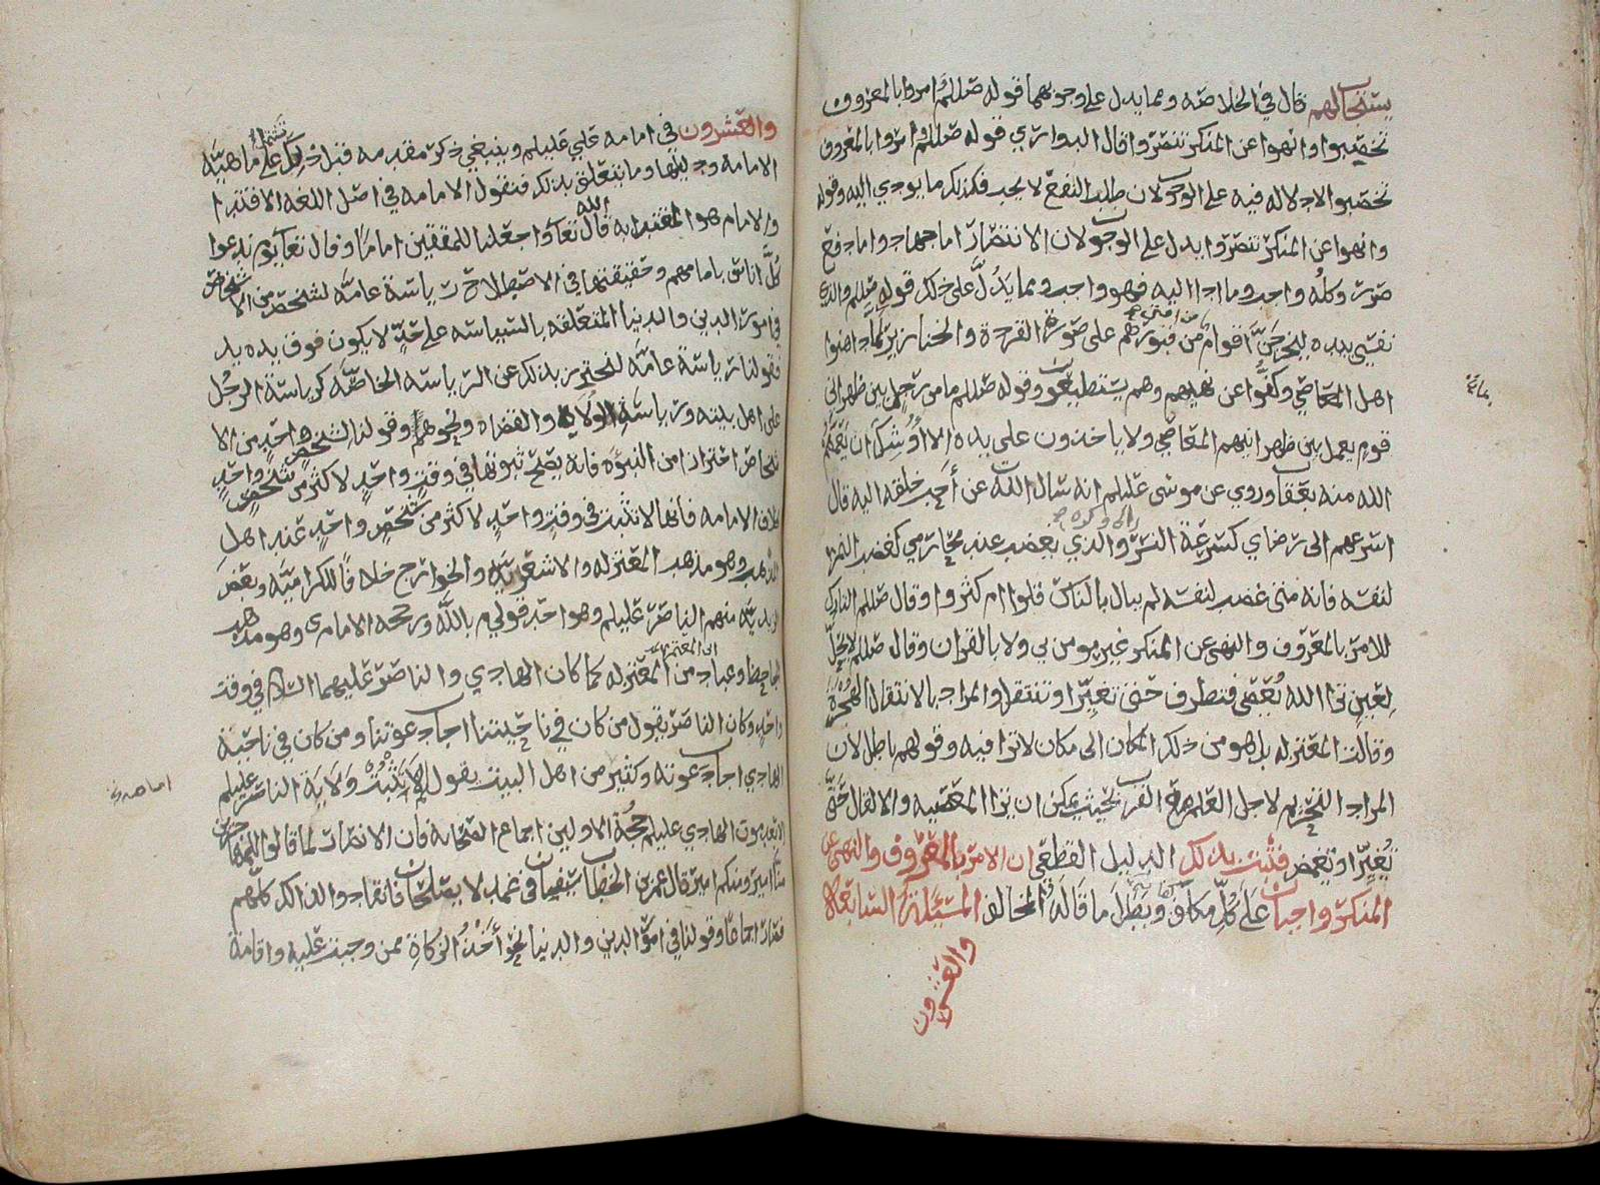 يستحالهم قال في الخلاصه ومما يدل على وجوبهما قوله صللم امروا بالمعروف
تخصبوا وانهوا عن المنكر تنصروا قال الدواري قوله صللم وامروا بالمعروف
تخصبوا لا دلاله فيه على الوجوب لان طلب النفع لا يجب فكذلك ما يودي اليه وقوله
وانهوا عن المنكر تنصروا يدل على الوجوب لان الانتصار اما جهاد واما دفع
ضرر وكله واجب وما ادا اليه فهو واجب ومما يدل على ذلك قوله صللم والذي
نفسي بيده ليخرجن اقوام من امتي من قبورهم على صورة القردة والخنازير بما داهنوا
اهل المعاصي وكفوا عن نهيهم وهم يستطيعون وقوله صللم ما من رجل بين ظهراني
قوم يعمل بين ظهرانيهم المعاصي ولا ياخذون على يده الا اوشك ان يعمهم
الله منه بعقاب وروي عن موسى عليلم انه سال الله عن أحب خلقه اليه قال
اسرعهم الى رضاي كسرعة النسر الى وكره والذي يغضب عند محارمي كغضب النمر
لنفسه فانه متى غضب لنفسه لم يبال بالناس قلوا ام كثروا وقال صللم التارك
للامر بالمعروف والنهي عن المنكر غير مومن بي ولا بالقران وقال صللم لا يحل
لعين ترا الله يعصى فتطرف حتى تغير او تنتقل والمراد بالانتقال الهجرة
وقالت المعتزله بل هو من ذلك المكان الى مكان لا ترا فيه وقولهم باطل لان
المراد التحريم لاجل العلم مع القرب بحيث يمكن ان ترا المعصيه والا لقال حتى
تغير او تغمض فثبت بذلك الدليل القطعي ان الامر بالمعروف والنهي عن
المنكر واجبان على كل مكلف وبطل ما قاله المخالف المسئلة السابعة
والعشرون
والعشرون في امامه علي عليلم وينبغي ذكر مقدمه قبل ذلك تشتمل على ماهيه
الامامه ودليلها وما يتعلق بذلك فنقول الامامه في اصل اللغه الاقتدا
والامام هو المقتدا به قال الله تعا واجعلنا للمتقين اماما وقال تعا يوم ندعوا
كل اناس بامامهم وحقيقتها في الاصطلاح رياسة عامه لشخص من الاشخاص
في امور الدين والدنيا المتعلقه بالسياسه على حد لا يكون فوق يده يد
فقولنا رياسة عامه لنحترز بذلك عن الرياسه الخاصه كرياسة الرجل
على اهل بيته ورياسة الولاه والقضاه ونحوهم وقولنا لشخص واحد من الا
شخاص احترازا من النبوه فانه يصح ثبوتها في وقت واحد لاكثر من شخص واحد
بخلاف الامامه فانها لا تثبت في وقت واحد لاكثر من شخص واحد عند اهل
المذهب وهو مذهب المعتزله والاشعريه والخوارج خلافا للكراميه وبعض
الزيديه منهم الناصر عليلم وهو احد قولي م بالله ورجحه الامام ي وهو مذهب
الجاحظ وعباد من المعتزله كما كان الهادي والناصر عليهما السلام في وقت
واحد وكان الناصر يقول من كان في ناحيتنا اجاب دعوتنا ومن كان في ناحية
الهادي اجاب دعوته وكثير من اهل البيت يقول لم تثبت ولاية الناصر عليلم
الا بعد موت الهادي عليلم حجة الاولين اجماع الصحابه فان الانصار لما قالوا للمهاجرين
منا امير ومنكم امير قال عمر بن الخطاب سيفان في غمد لا يصلحان فانقادوا لذالك كلهم
فصار اجماعا وقولنا في امور الدين والدنيا نحو أخذ الزكاة ممن وجبت عليه واقامة